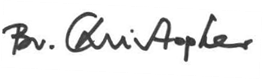 Br. Christopher